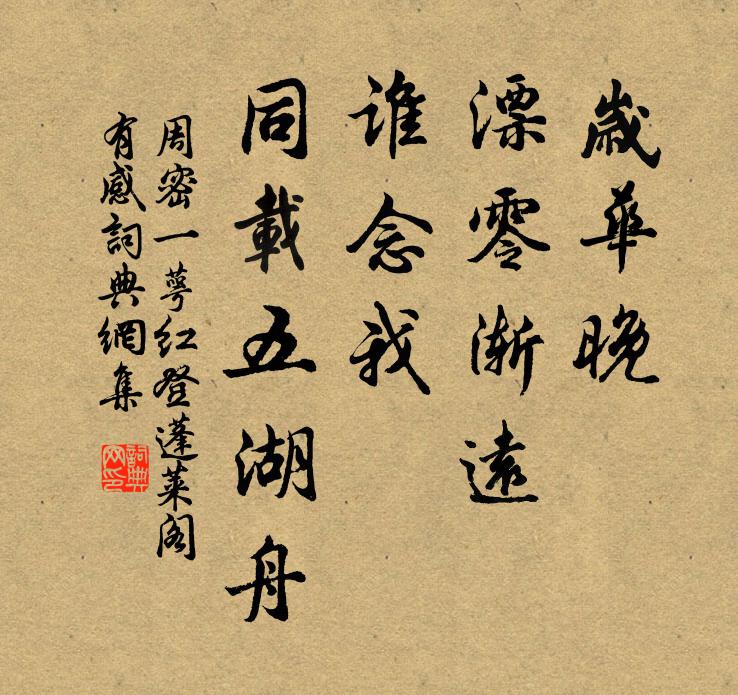 歲華晚
漂零漸遠
誰念我
同載五湖舟
周密一萼紅登蓬萊閣
有感詞典網集
詞典
网印